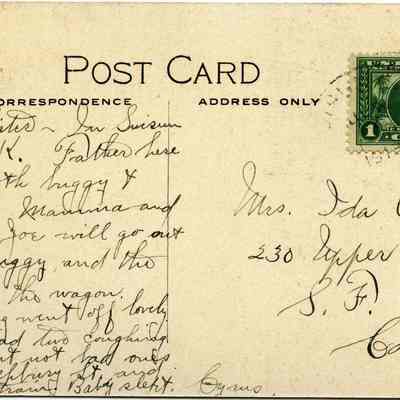 POST CARD
ORRESPONDENCE
ADDRESS ONLY
In Suisun
K. Father here
th buggy &
Mamma and
Joe will go out
uggy, and the
the wagon.
g went off lovely
ad two coughing
t not bad ones
and
train, Baby slept. Cyrus.
Mrs. Ida
230 Upper
S. F.
Ca
1